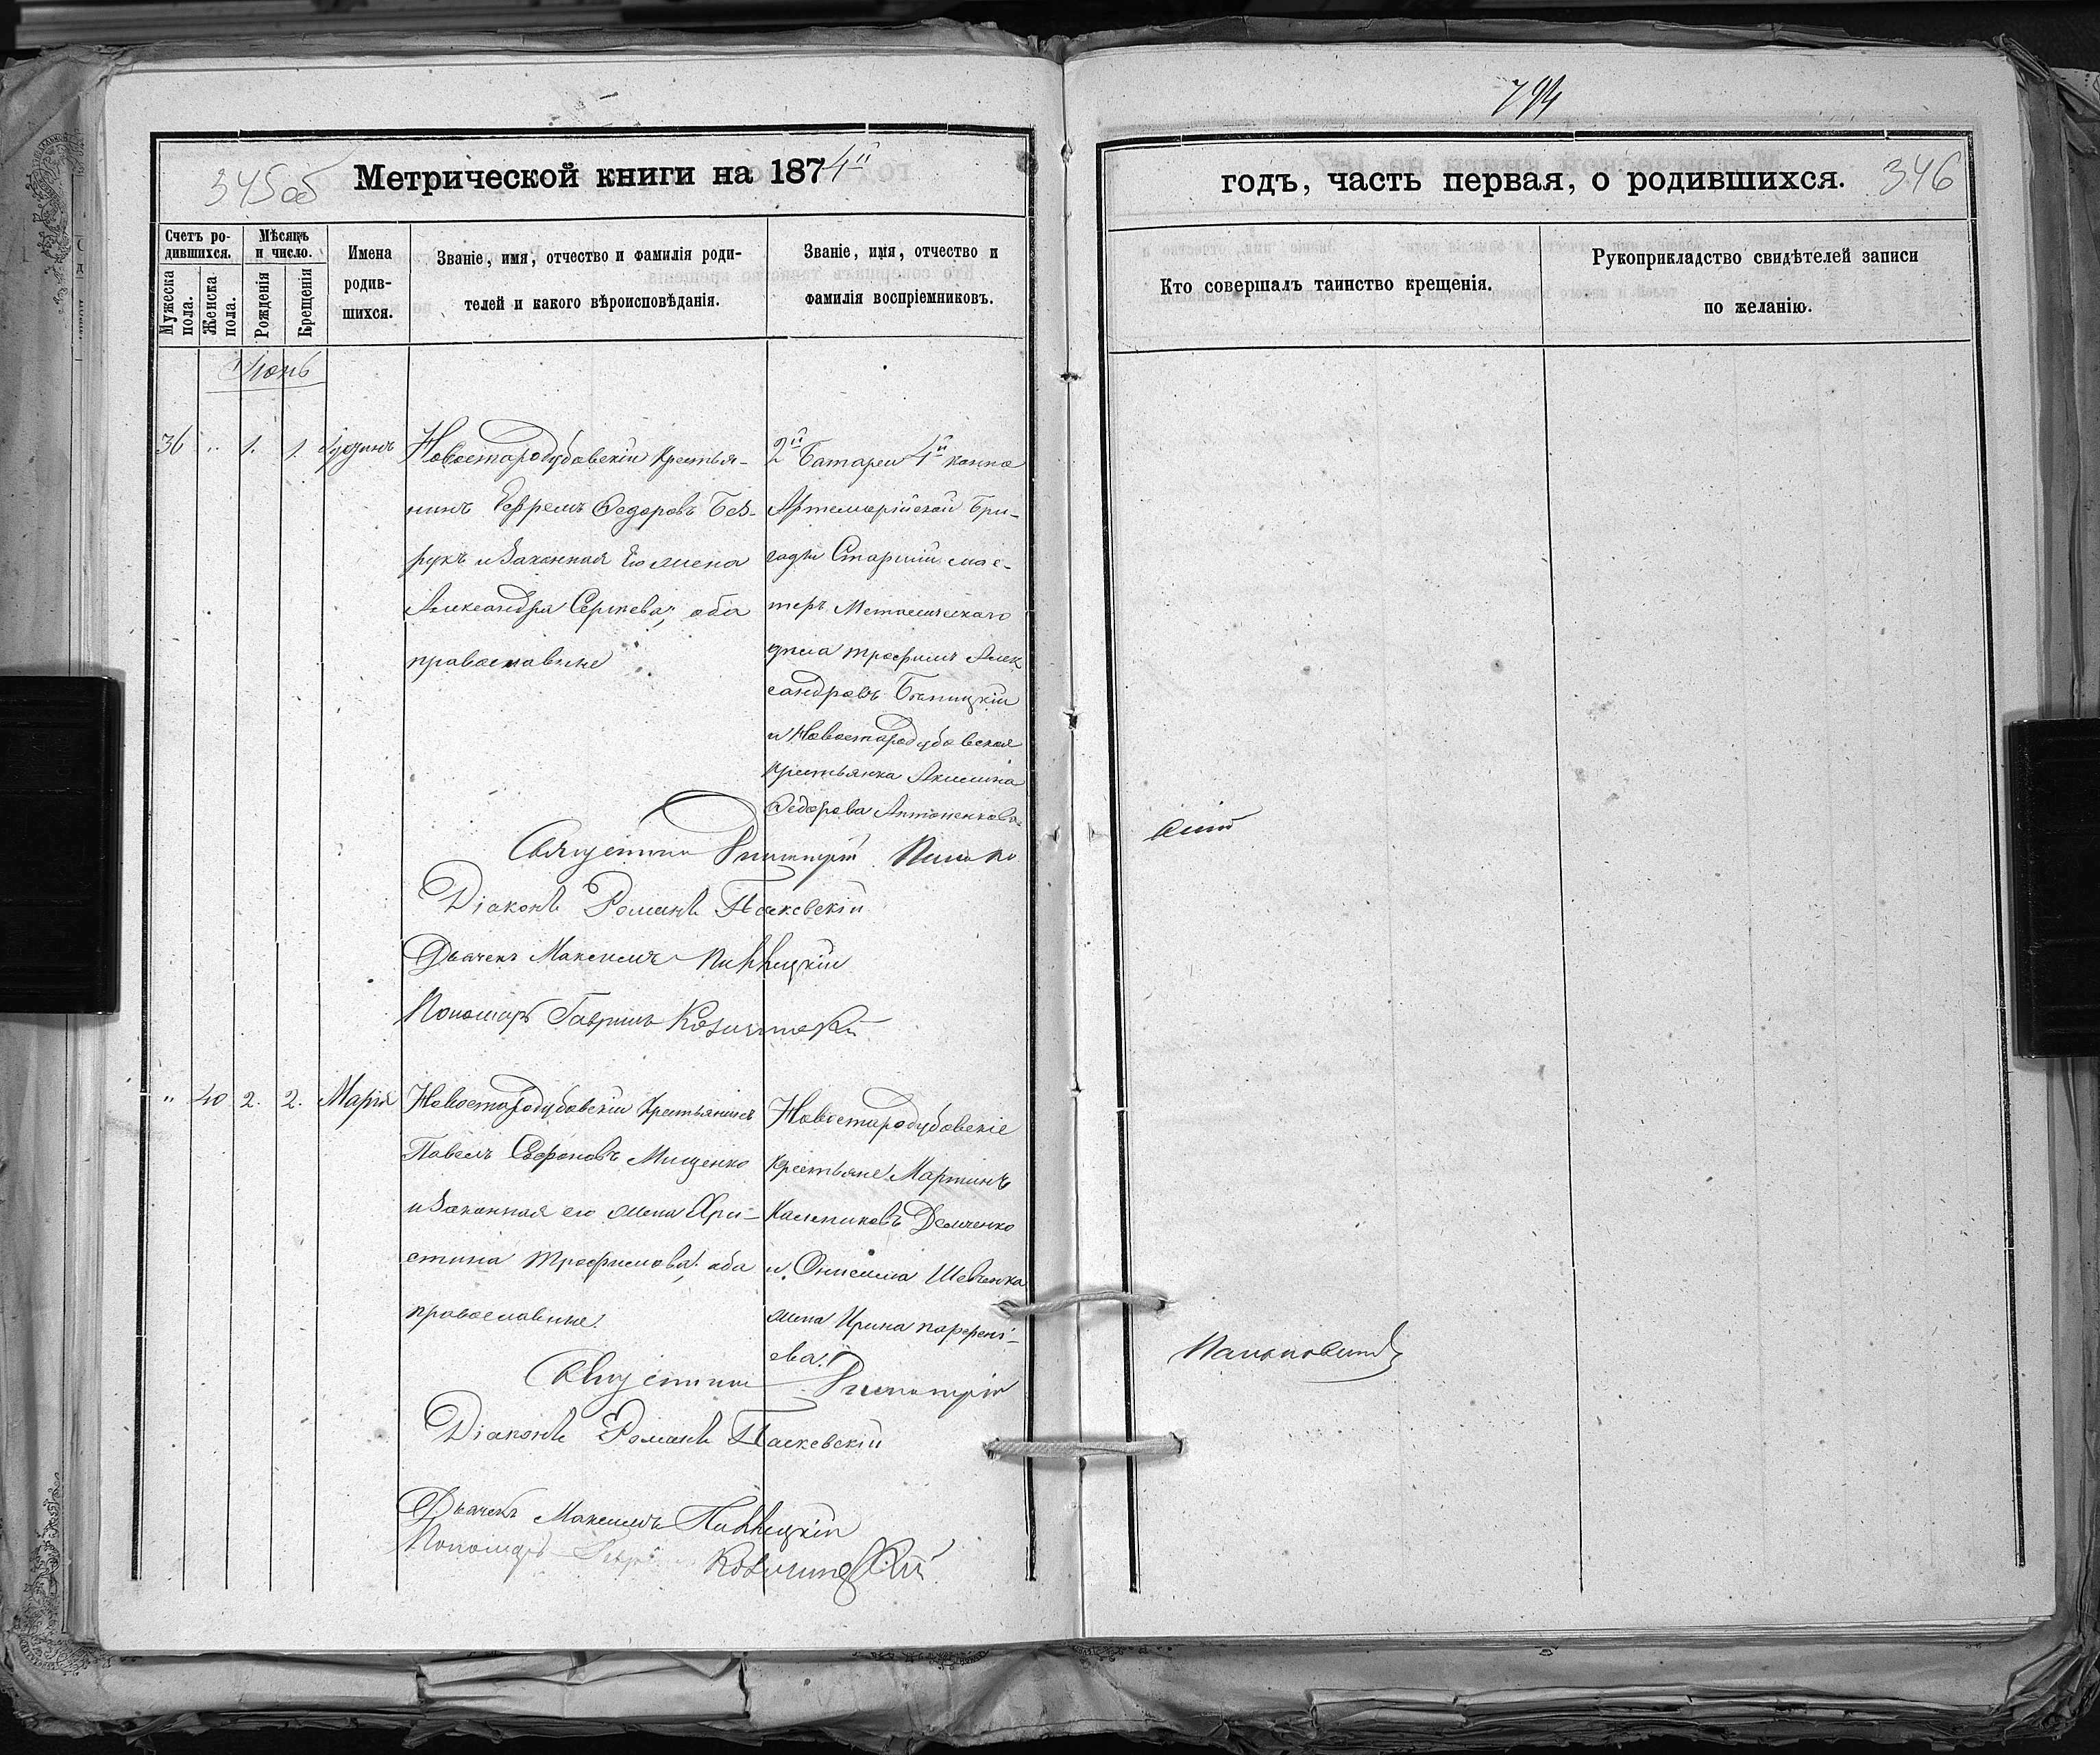 794
345 об
Метрической книги на 1874й
годъ, часть первая, о родившихся.
346
Счетъ родившихся.
Мужеска пола.
Женска пола.
Мѣсяцъ и число.
Рожденія
Крещенія
Имена родившихся.
Званіе, имя, отчество и фамилія роди-
телей и какого вѣроисповѣданія.
Званіе, имя, отчество и
фамилія воспріемниковъ.
Кто совершалъ таинство крещенія.
Рукоприкладство свидѣтелей записи
по желанію.
Іюнь
36 " 1. 1.
Новостародубовскій Крестья-
нинъ Ефремъ Федоровъ Без-
рукъ и Законная Его жена
Александра Сергѣева, оба
православные
2й Батареи 4й конно
Артилерійской Бри-
гады Старшій мас-
теръ Металическаго
дѣла Трофимъ Алек
сандровъ
и Новостародубовская
Крестьянка Акилина
Федорова Антоненкова
Священникъ Димитрій
Діаконъ Романъ Паскевскій
Дьячекъ Максимъ
Пономарь Гавріилъ
" 40 2. 2. Марія
Новостародубовскій Крестьянинъ
Павелъ Мищенко
и Законная его жена Хри-
стина Трофимова, оба
православные.
Новостародубовскіе
Крестьяне Мартинъ
Калениковъ Демченко
и Онисима Шевченка
жена Ирина Парфені-
ева.
Священникъ Димитрій
Діаконъ Романъ Паскевскій
Дьячекъ Максимъ
Пономарь